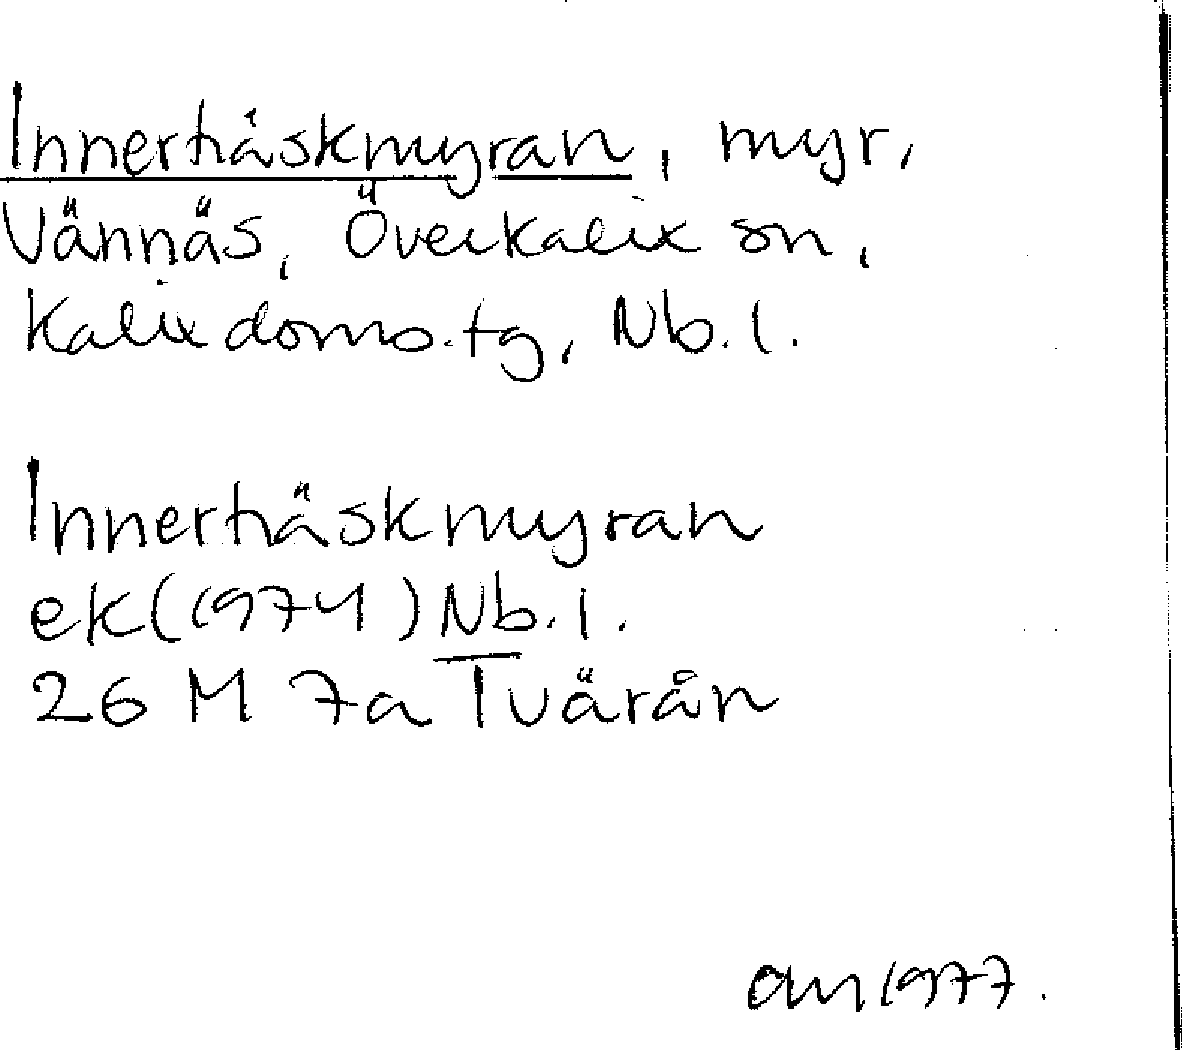 Innerträskmyran, myr,
Vännäs, Överkalix sn,
Kalix doms.tg, Nb.l.
Innerträskmyran
ek(1974) Nb.l.
26 M 7a Tvärån
1977.